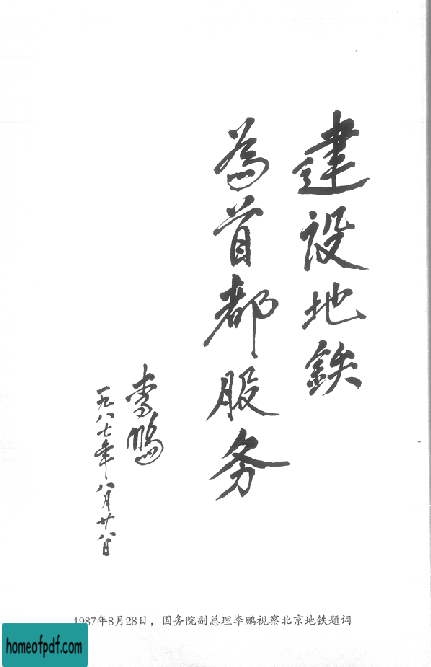 建设地鉄
为首都服务
李鹏
一九八七年八月廿八日
1987年8月28日，国务院副总理李鹏视察北京地铁题词
homeofpdf.com